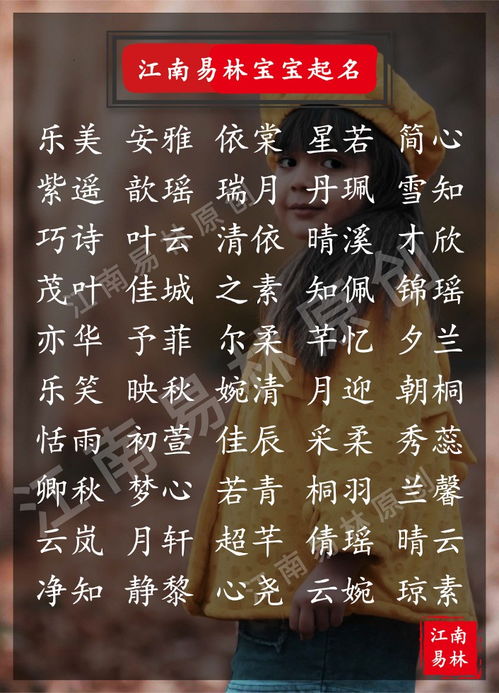 江南易林宝宝起名
乐美 安雅 依棠 星若 简心
紫遥 歆瑶 瑞月 丹珮 雪知
巧诗 叶云 清依 晴溪 才欣
茂叶 佳城 之素 知佩 锦瑶
亦华 予菲 尔柔 芊忆 夕兰
乐笑 映秋 婉清 月迎 朝桐
恬雨 初萱 佳辰 采柔 秀蕊
卿秋 梦心 若青 桐羽 兰馨
云岚 月轩 超芊 倩瑶 晴云
净知 静黎 心尧 云婉 琼素
江南
易林
江南易林原创
江南易林原创
江南易林原创